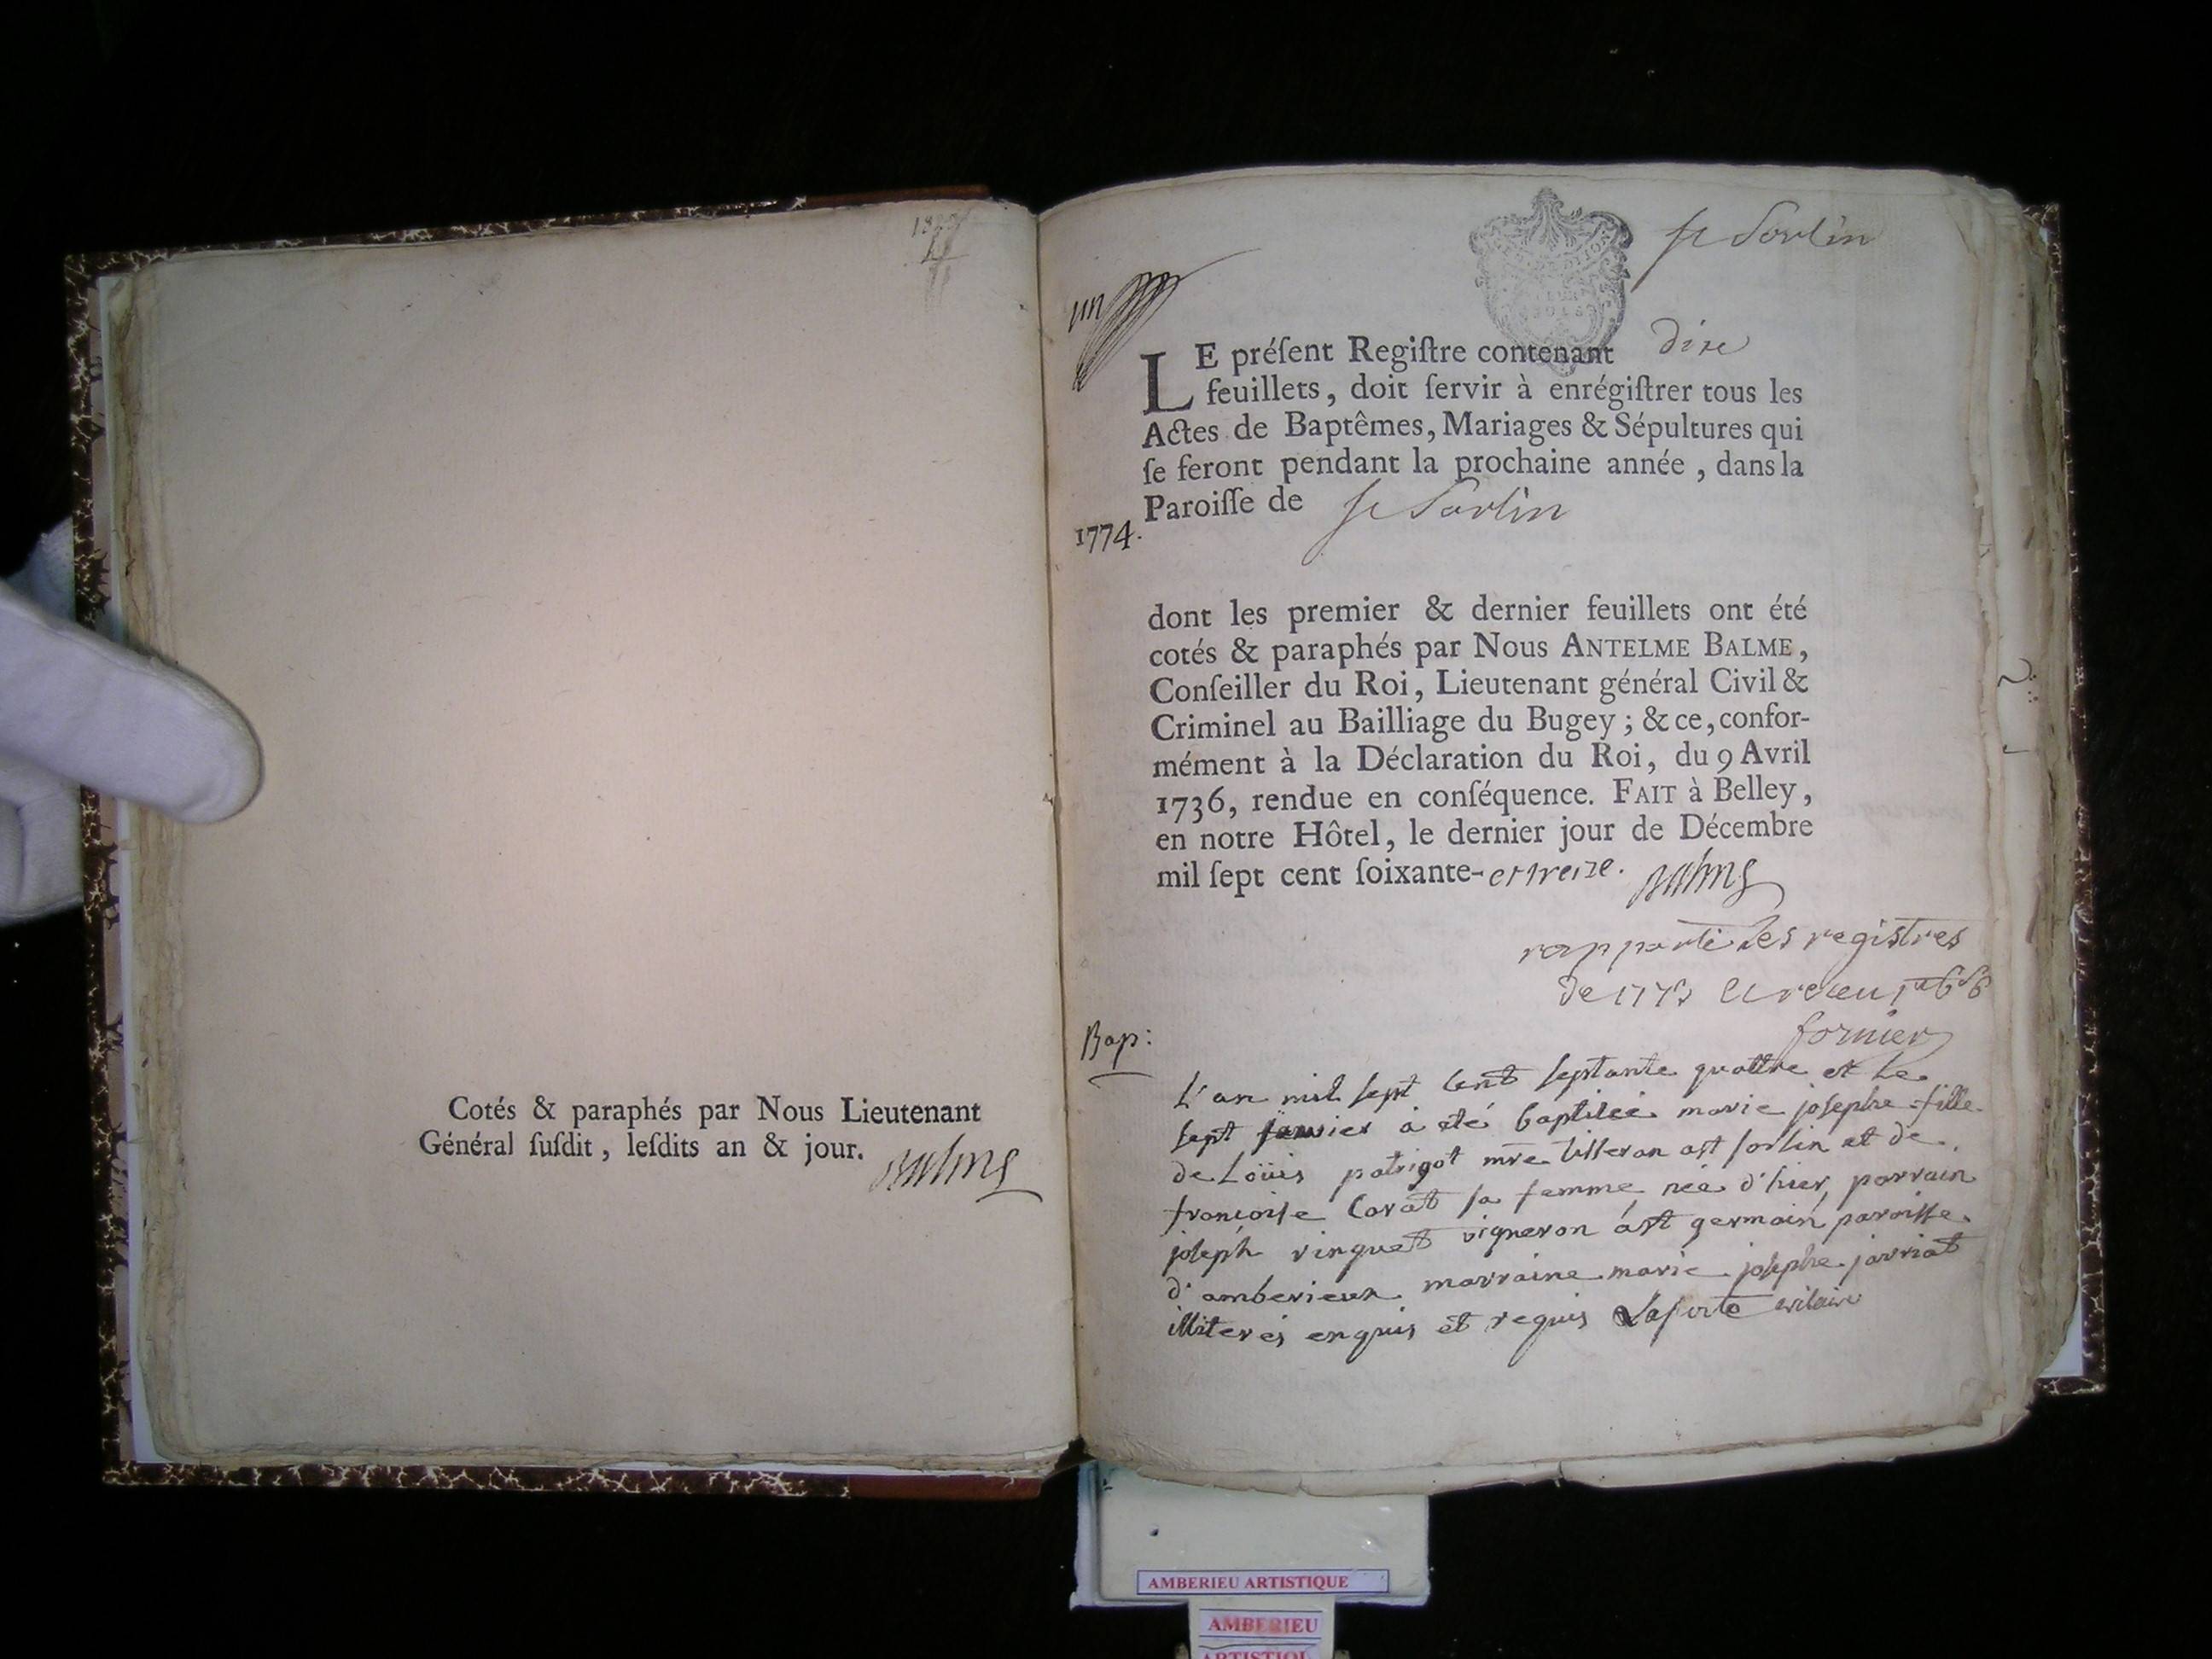 Cotés & paraphés par Nous Lieutenant
Général ſuſdit, leſdits an & jour.
Balme
un
st Sorlin
LE préſent Regiſtre contenant dixe
feuillets, doit ſervir à enrégiſtrer tous les
Actes de Baptêmes, Mariages & Sépultures qui
ſe feront pendant la prochaine année, dans la
Paroiſſe de st Sorlin
1774.
dont les premier & dernier feuillets ont été
cotés & paraphés par Nous ANTELME BALME,
Conſeiller du Roi, Lieutenant général Civil &
Criminel au Bailliage du Bugey; & ce, confor-
mément à la Déclaration du Roi, du 9 Avril
1736, rendue en conſéquence. FAIT à Belley,
en notre Hôtel, le dernier jour de Décembre
mil ſept cent ſoixante- et treize. Balme
rapporté les registres
de 1773 et receu
fornier
Bap:
L'an mil sept cent septante quattre et le
sept janvier a été baptisée marie josephe fille
de Loüis patrigot mre tisseran a st sorlin et de
francoise Corat sa femme née d'hier, parrain
joseph vinquet vigneron a st germain paroisse
d'amberieux marraine marie josephe jarriat
illiterés enquis et requis Laporte vicaire
AMBERIEU ARTISTIQUE
AMBERIEU